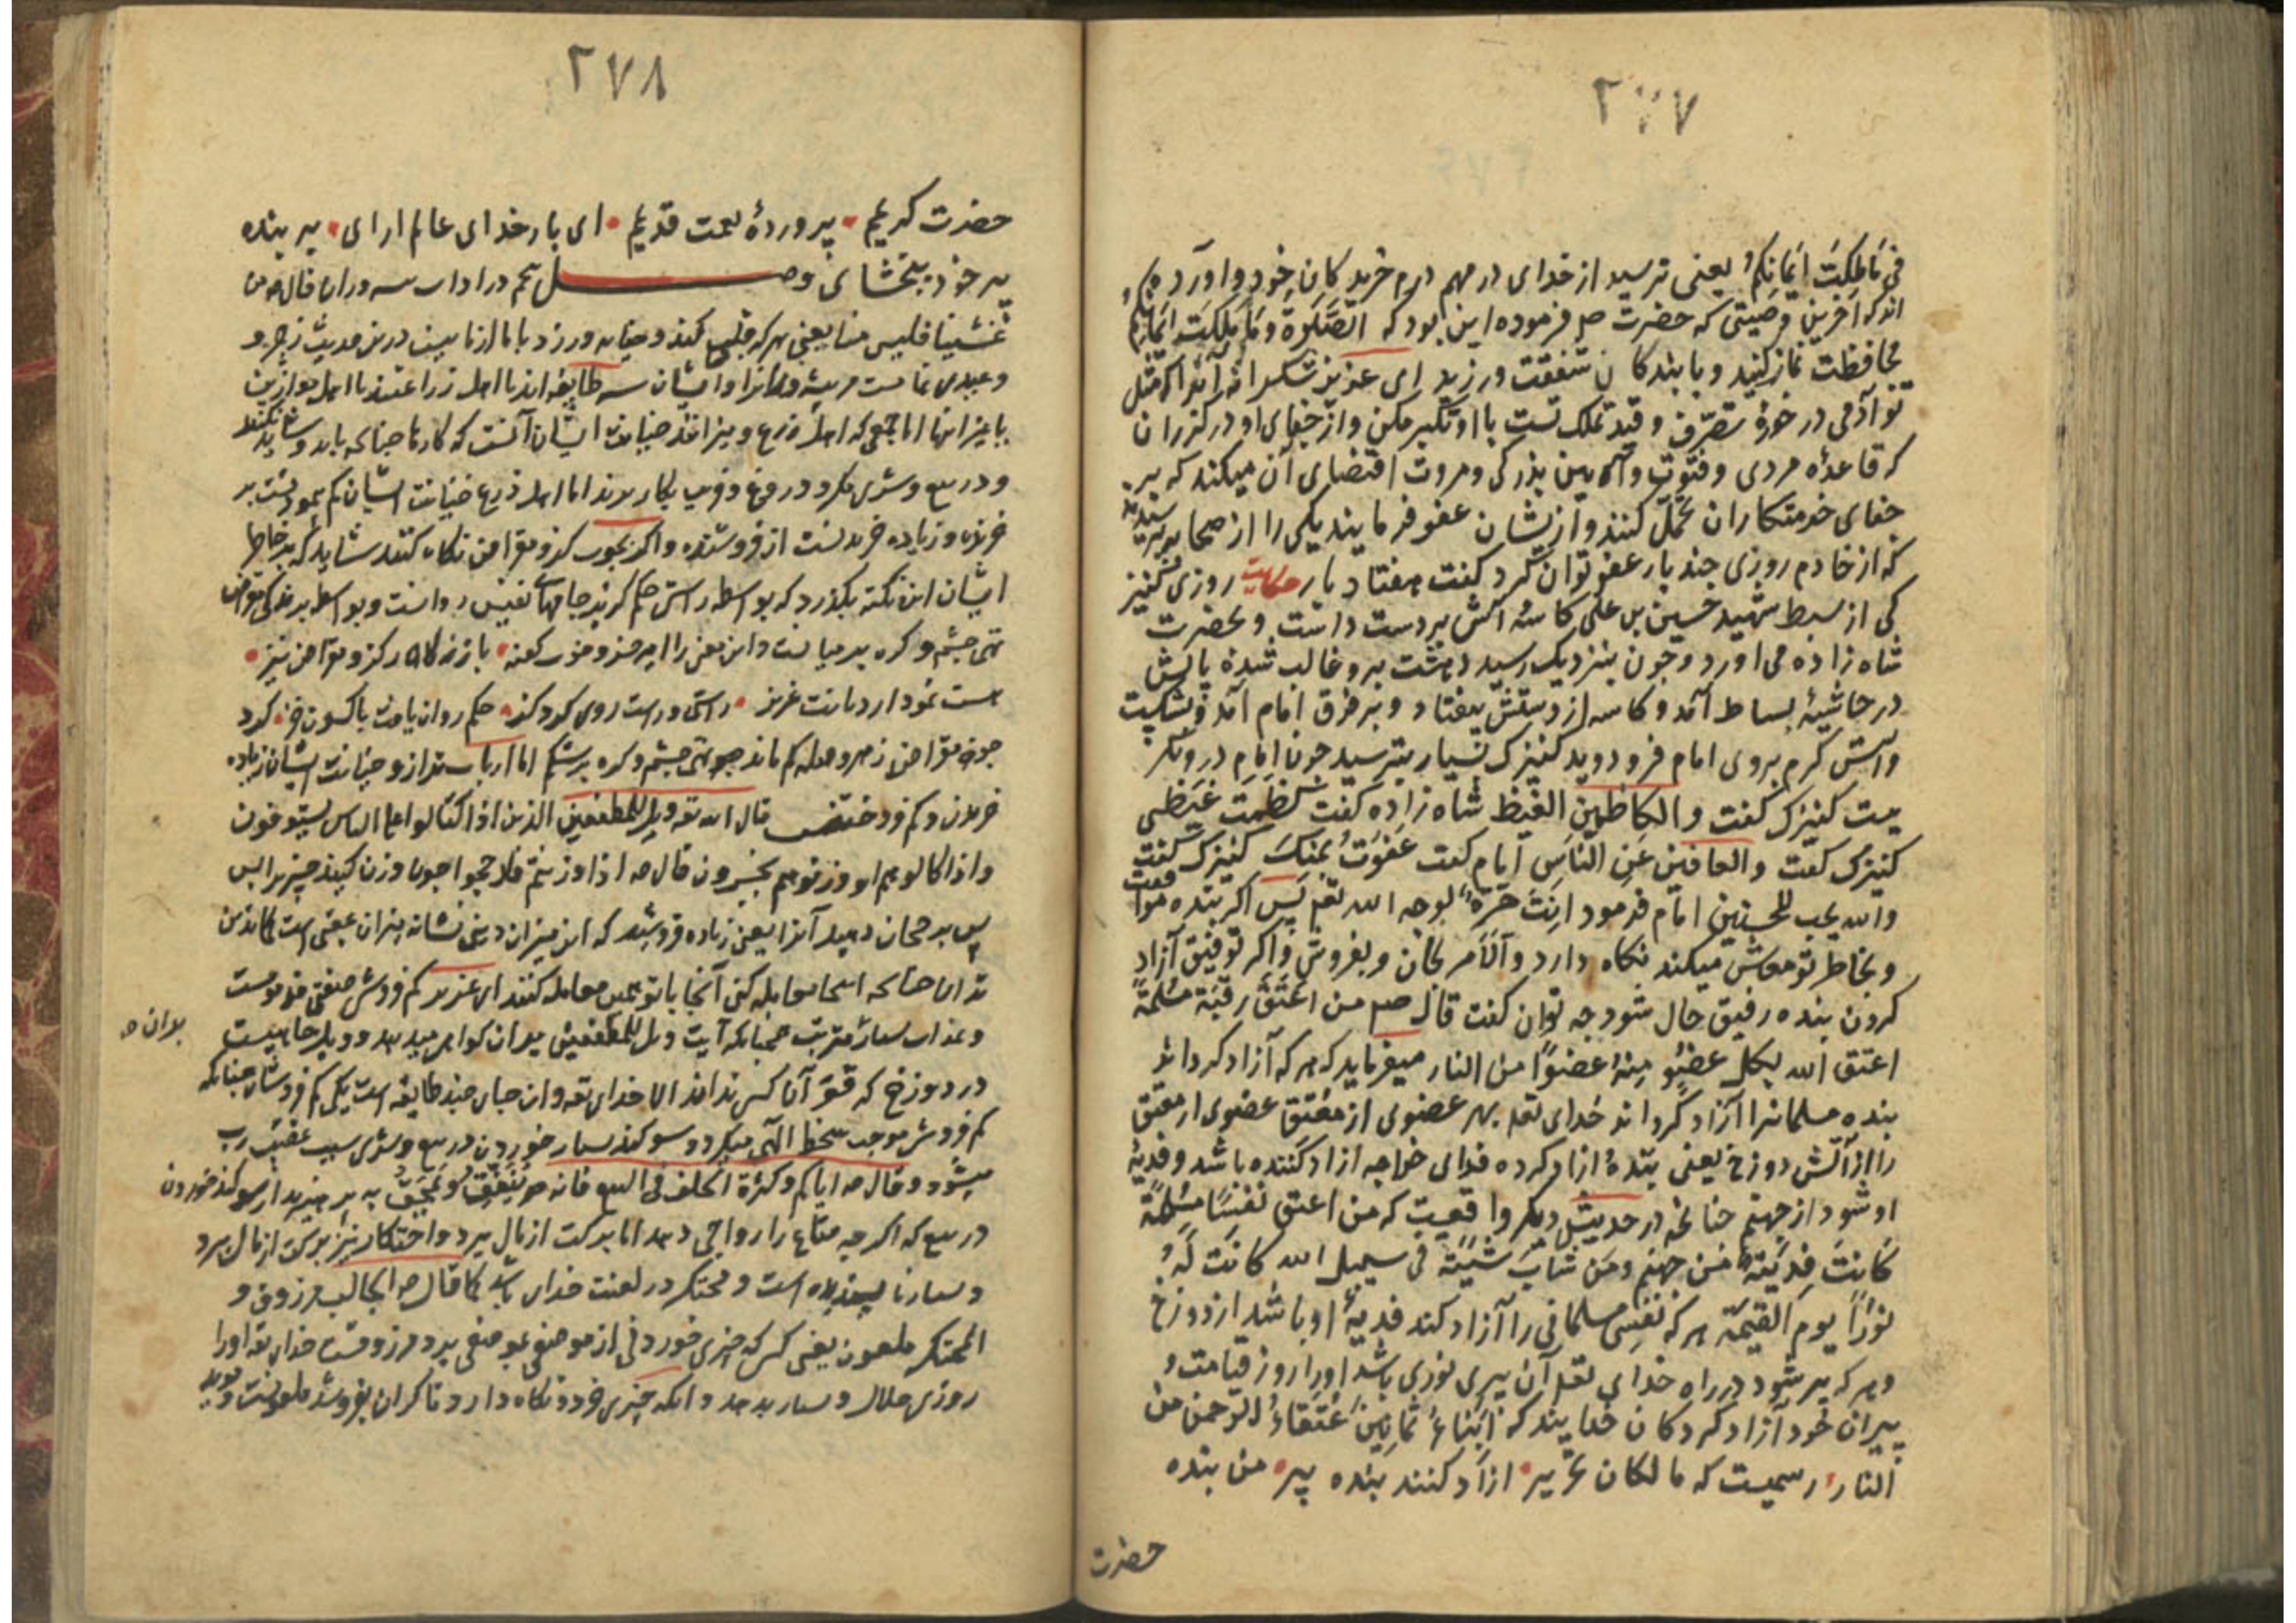 ٢٧٧
فی ما ملکت ایمانکم یعنی ترسید از خدای در مهم درم خرید کان خود و آورده
اند که آخرین وصیتی که حضرت ص فرموده این بود که الصلوة وما ملکت ایمانکم
محافظت نماز کنید و با بندکان شفقت ورزید ای عزیز شکرانه آنرا که مثل
تو آدمی در حوزۀ تصرف و قید تملک تست با او تکبر مکن و از جفای او در کذران
که قاعدۀ مردی و فتوت و آیین بزرکی و مروت اقتضای آن میکند که بر
جفای خدمتکاران تحمل کنند و از یشان عفو فرمایند یکی را از صحابه پرسیدند
که از خادم روزی چند بار عفو توان کرد کفت هفتاد بار حکایت روزی کنیز
کی از سبط شهید حسین بن علی کاسۀ آش بر دست داشت و بحضرت
شاه زاده می آورد و چون بنزدیک رسید دهشت برو غالب شده پایش
در حاشیۀ بساط آمد و کاسه از دستش بیفتاد و بر فرق امام آمد و بشکست
و آش کرم بروی امام فرو دوید کنیزک بسیار بترسید چون امام درو نکر
یست کنیزک کفت و الکاظمین الغیظ شاه زاده کفت کظمت غیظی
کنیزک کفت والعافین عن الناس امام کفت عفوت عنک کنیزک کفت
والله یحب المحسنین امام فرمود انت حرة لوجه الله تعم پس اکر بنده موافقت
و بخاطر تو معاش میکند نکاه دارد والا مرنجان و بفروش و اکر توفیق آزاد
کردن بنده رفیق حال شود چه توان کفت قال صم من اعتق رقبة مسلمة
اعتق الله بکل عضو منه عضوا من النار میفرماید که هر که آزاد کرداند
بنده مسلمانرا آزاد کرداند خدای تعم بهر عضوی از معتق عضوی از معتق
را از آتش دوزخ یعنی بندۀ ازاد کرده فدای خواجه ازاد کننده باشد و فدیۀ
او شود از جهنم چنانچه در حدیث دیکر واقعیت که من اعتق نفسا مسلمة
کانت فدیته من جهنم ومن شاب شیبة فی سبیل الله کانت له
نورا یوم القیمة هر که نفس مسلمانی را آزاد کند فدیۀ او باشد از دوزخ
و هر که پیر شود در راه خدای تعم آن پیری نوری باشد اورا روز قیامت و
پیران خود آزاد کرد کان خدایند که ابناء ثمانین عتقاء الرحمن من
النار رسمیست که مالکان تحریر ازاد کنند بنده پیر من بنده
حضرت
٢٧٨
حضرت کریم پروردۀ نعمت قدیم ای بار خدای عالم ارای بر بنده
پیر خود ببخشای وصل
غشینا فلیس منا یعنی هر که کند و خیانت ورزد با ما از ما نیست درین حدیث زجر و
وعیدی تمامست
با غیر اینها اما جمعی که اهل ذرع و میزانند خیانت ایشان آنست که
و در بیع و شری مکر و دروغ و فریب بکار برند اما اهل ذرع خیانت ایشان کم پیمودنست بر
خریدن و زیاده خریدنست از فروشنده و اکر بچوب کز و مقراض نکاه کنند شاید که بر خاطر
ایشان این نکته بکذرد که بواسطه راستی حکم کز بر جامهای نفیس رواست و بواسطه
تهی چشم و کره بر میانست
است نمودار دیانت عزیز راستی و راست روی کرد کز حکم روان یافت
چون مقراض تهی چشم و کره بر شکم اما ارباب ستد از و خیانت ایشان زیاده
خریدن و کم فروختنس قال الله تع ویل للمطففین الذین اذا اکتالوا علی الناس یستوفون
واذا کالوهم او وزنوهم یخسرون قال ص اذا وزنتم فلارجحوا چون وزن کنید چیزیرا پس
پس بر رجحان دهید آنرا یعنی زیاده فروشید که این میزان دنیی نشانه میزان عقبی است
معامله کنی آنجا با تو همین معامله کنند ای عزیز کم فروشی صفتی مذمومست
و عذاب بسیار مترتب چنانکه آیت ویل للمطففین بدان کواهی میدهد و ویل چاهیست
در دوزخ که قعر آنرا کس نداند الا خدای تع و آن جای چند طایفه است یکی کم فروشان چنانکه
کم فروشی موجب سخط الهی میکردد سوکند بسیار خوردن در بیع و شری سبب غضب رب
میشود و قال ص ایاکم وکثرة الحلف فی البیع فانه ینفق ثم یمحق بپرهیزید از سوکند خوردن
در بیع که اکر چه متاع را رواجی دهد اما برکت از مال ببرد و احتکار نیز برکت از مال ببرد
و بسیار ناپسندیده است و محتکر در لعنت خدای باشد کما قال ص الجالب مرزوق و
المحتکر ملعون یعنی کسی که چیزی خوردنی از موضعی بموضعی برد مرزوقست خدای تع اورا
روزی حلال و بسیار بدهد و آنکه چیزی خورد و نکاه دارد تا کران بفروشد ملعونست